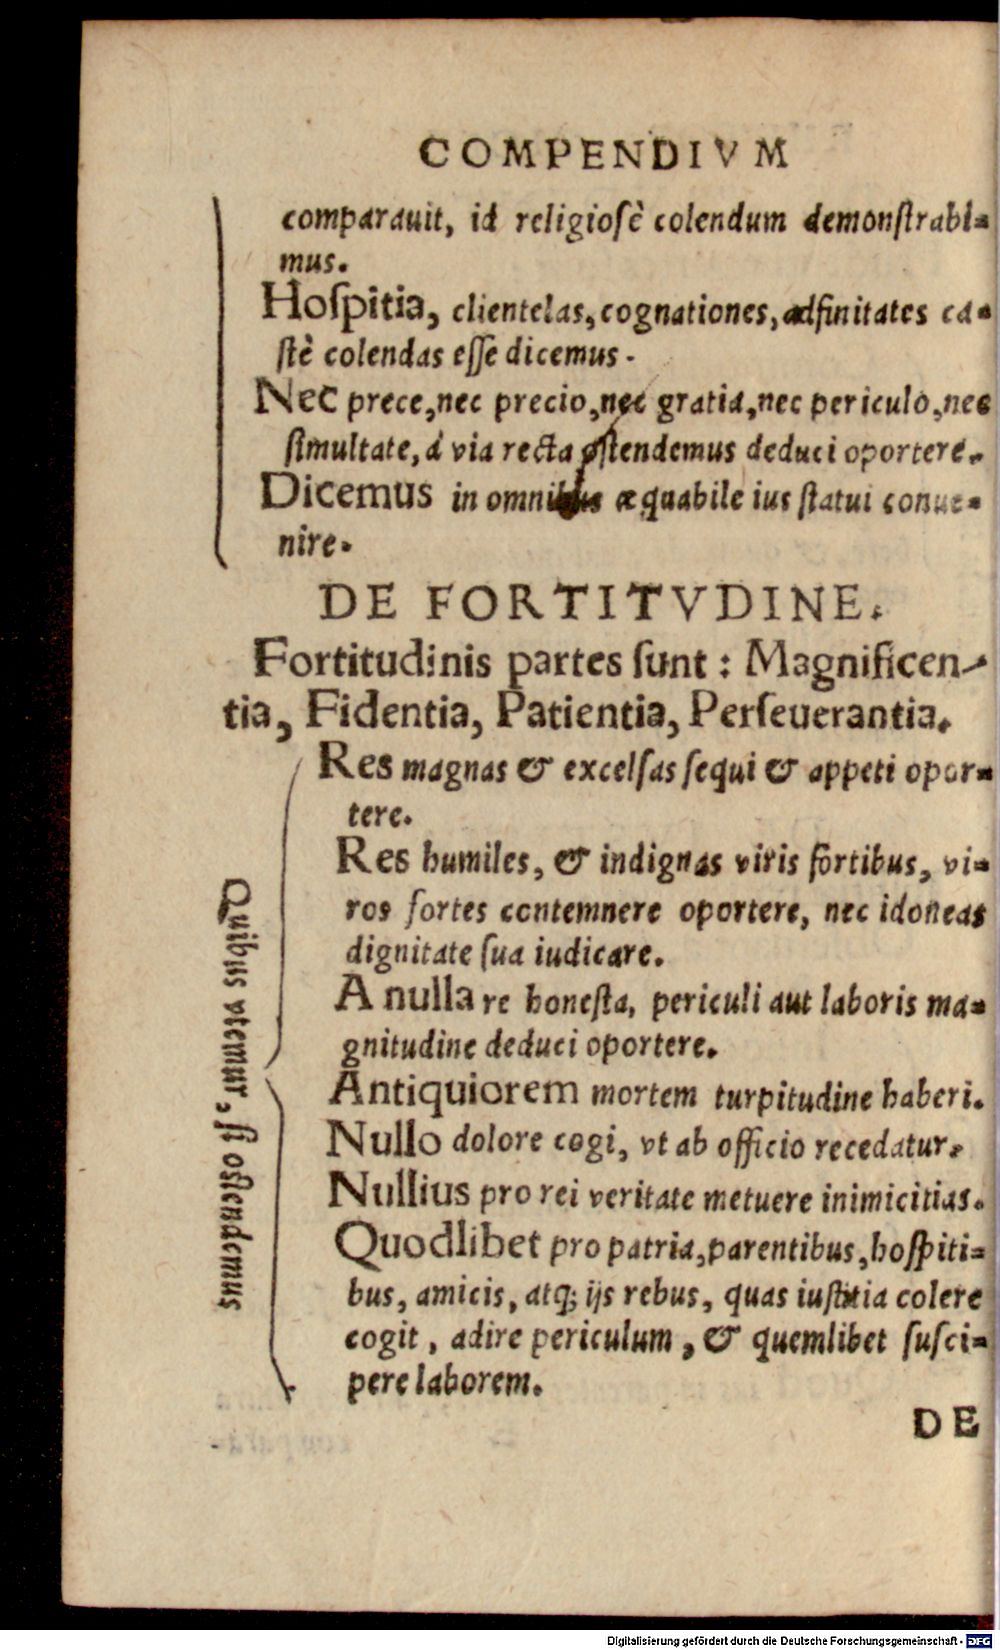 COMPENDIVM
comparauit, id religiosè colendum demonstrabi=
mus.
Hoſpitia, clientelas, cognationes, adfinitates ca=
ſtè colendas eſſe dicemus.
Nec prece, nec precio, nec gratia, nec periculo, nec
ſimultate, à via recta oſtendemus deduci oportere.
Dicemus in omnibus æquabile ius ſtatui conue=
nire.
DE FORTITVDINE.
Fortitudinis partes ſunt: Magnificen-
tia, Fidentia, Patientia, Perſeuerantia.
Quibus vtemur, ſi oſtendemus
Res magnas & excelſas ſequi & appeti opor=
tere.
Res humiles, & indignas viris fortibus, vi=
ros fortes contemnere oportere, nec idoneas
dignitate ſua iudicare.
A nulla re honeſta, periculi aut laboris ma=
gnitudine deduci oportere.
Antiquiorem mortem turpitudine haberi.
Nullo dolore cogi, vt ab officio recedatur.
Nullius pro rei veritate metuere inimicitias.
Quodlibet pro patria, parentibus, hoſpiti=
bus, amicis, atq; ijs rebus, quas iuſtitia colere
cogit, adire periculum, & quemlibet ſuſci=
pere laborem.
DE
Digitalisierung gefördert durch die Deutsche Forschungsgemeinschaft - DFG